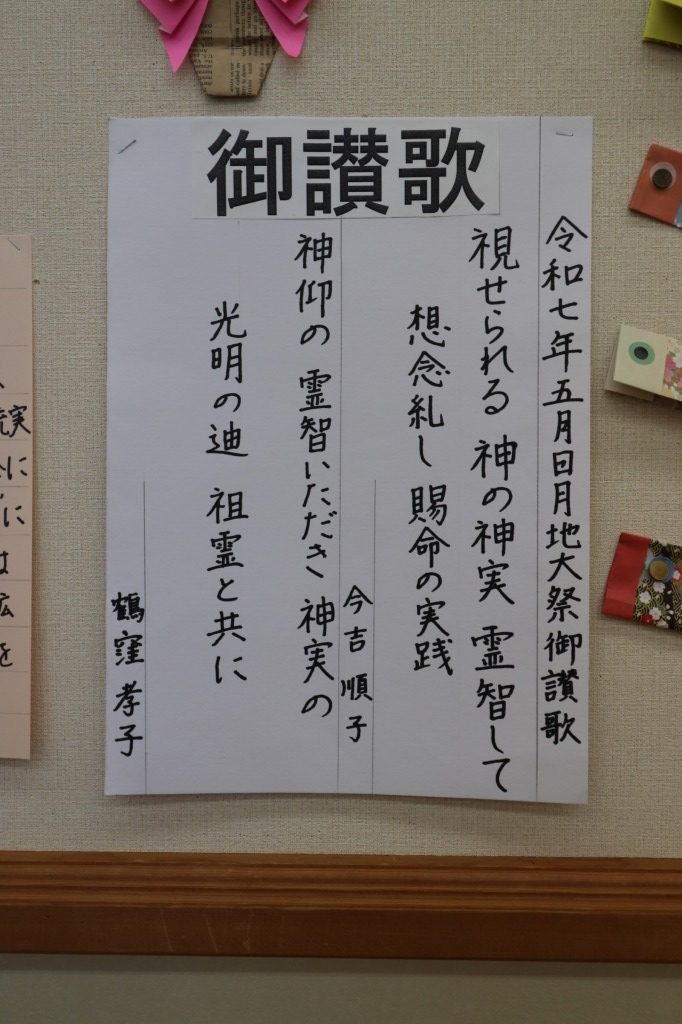 御讃歌
令和七年五月日月地大祭御讃歌
視せられる 神の神実 霊智して
想念糺し 賜命の実践
今吉 順子
神仰の 霊智いただき 神実の
光明の迪 祖霊と共に
鶴窪 孝子